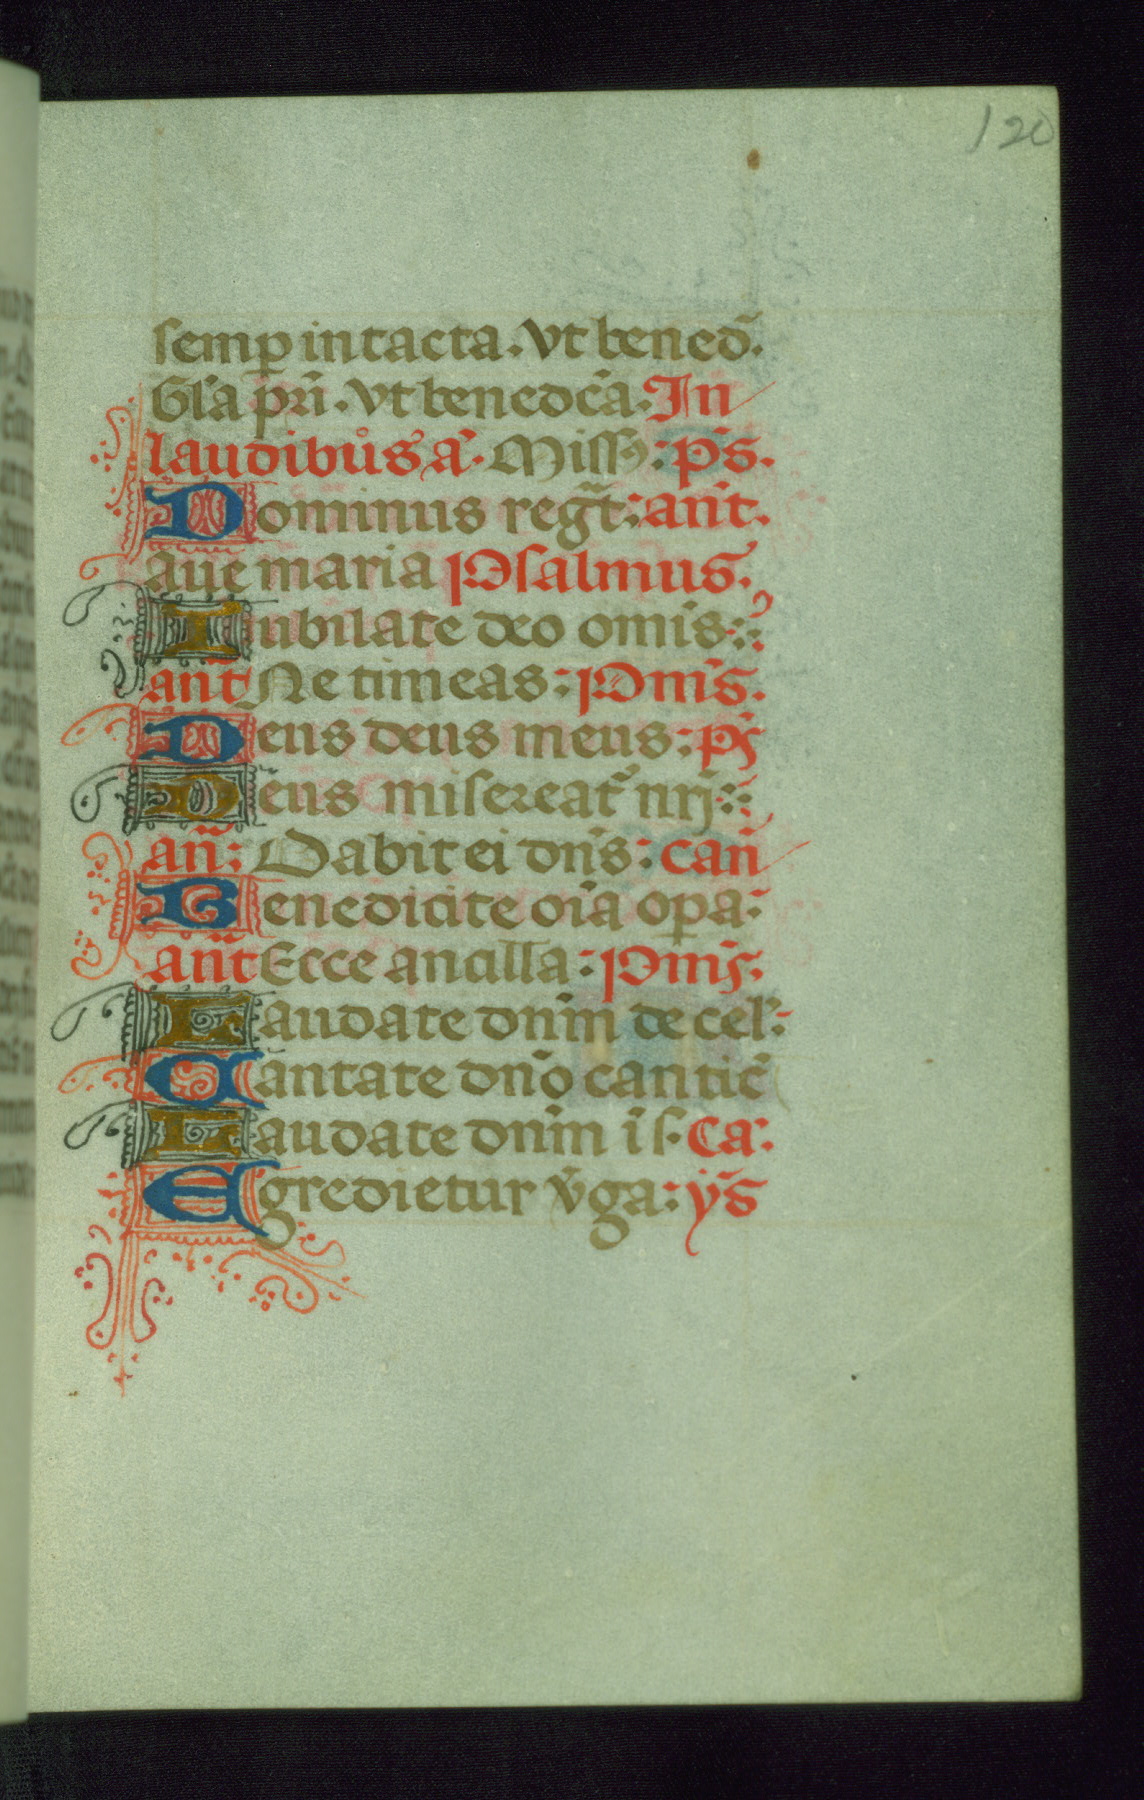 120
semp intacta. vt bened̄.
Gl̄a pr̄i. vt benedc̄a. In
laudibus a͞. Miss᷒. ps̄.
Dominus regt̄: ant̄.
aue maria Psalmus.
Iubilate deo omīs:
ant̄ Ne timeas: Pmīs.
Deus deus meus: ps̄
Deus misereat᷒ nr̄j:
an̄: Dabit ei dn̄s: can̄
Benedicite oīa opa.
ant̄ Ecce ancilla: Pmīs.
Laudate dn̄m de cel᷒:
Cantate dn̄o cantic̄
Laudate dn̄m ī s. Ca:
Egredietur v̄ga: ys̄